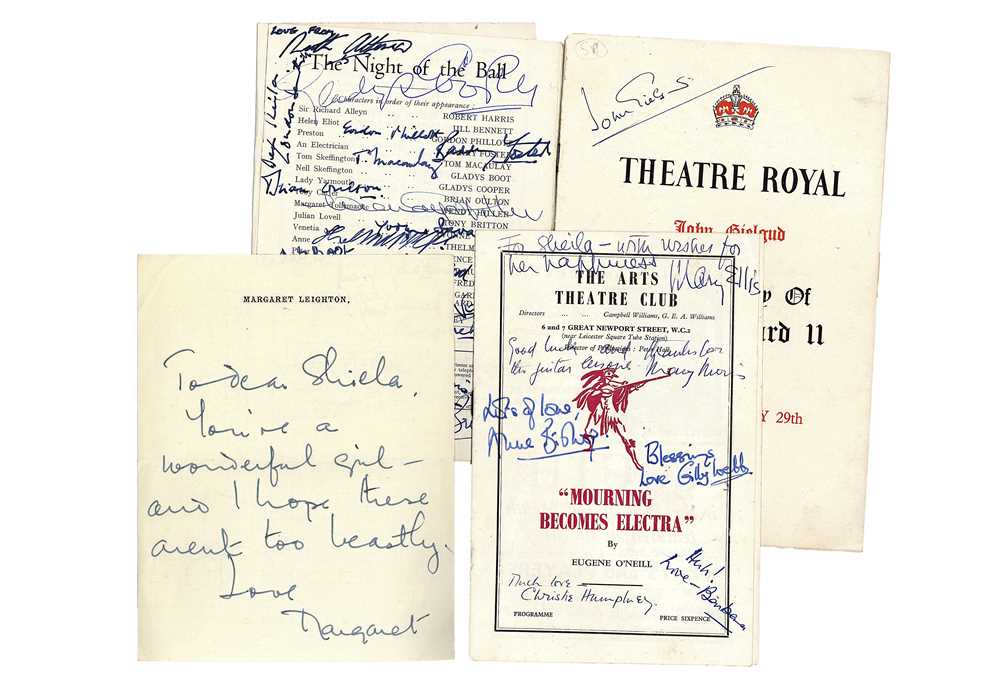 LOVE FROM
The Night of the Ball
Characters in order of their appearance :
Sir Richard Alleyn
ROBERT HARRIS
Helen Eliot
JILL BENNETT
Preston
Gordon Phillott
GORDON PHILLOTT
An Electrician
Barry Foster
BARRY FOSTER
Tom Skeffington
T. Macaulay
TOM MACAULAY
Nell Skeffington
GLADYS BOOT
Lady Yarmouth
GLADYS COOPER
Brian Oulton
BRIAN OULTON
Margaret Tollemache
WENDY HILLER
Julian Lovell
TONY BRITTON
Venetia
Anne
THELM
Dear Sheila
London
SR
John Gielgud
THEATRE ROYAL
John Gielgud
y Of
ard II
Y 29th
MARGARET LEIGHTON,
To dear Shiela,
You're a
wonderful girl –
and I hope these
aren't too beastly.
Love
Margaret
For Sheila – with wishes for
her happiness
Mary Ellis
THE ARTS
THEATRE CLUB
Directors .... .... Campbell Williams, G. E. A. Williams
6 and 7 GREAT NEWPORT STREET, W.C.2
(near Leicester Square Tube Station)
Director of Productions : Peter Hall
Good luck and thanks for
the guitar lessons – Mary Morris
Lots of love,
Anne Bishop.
Blessings
Love Gilly Webb
"MOURNING
BECOMES ELECTRA"
By
EUGENE O'NEILL
Huh!
Love – Barbara
Much love
Christie Humphrey.
PROGRAMME
PRICE SIXPENCE